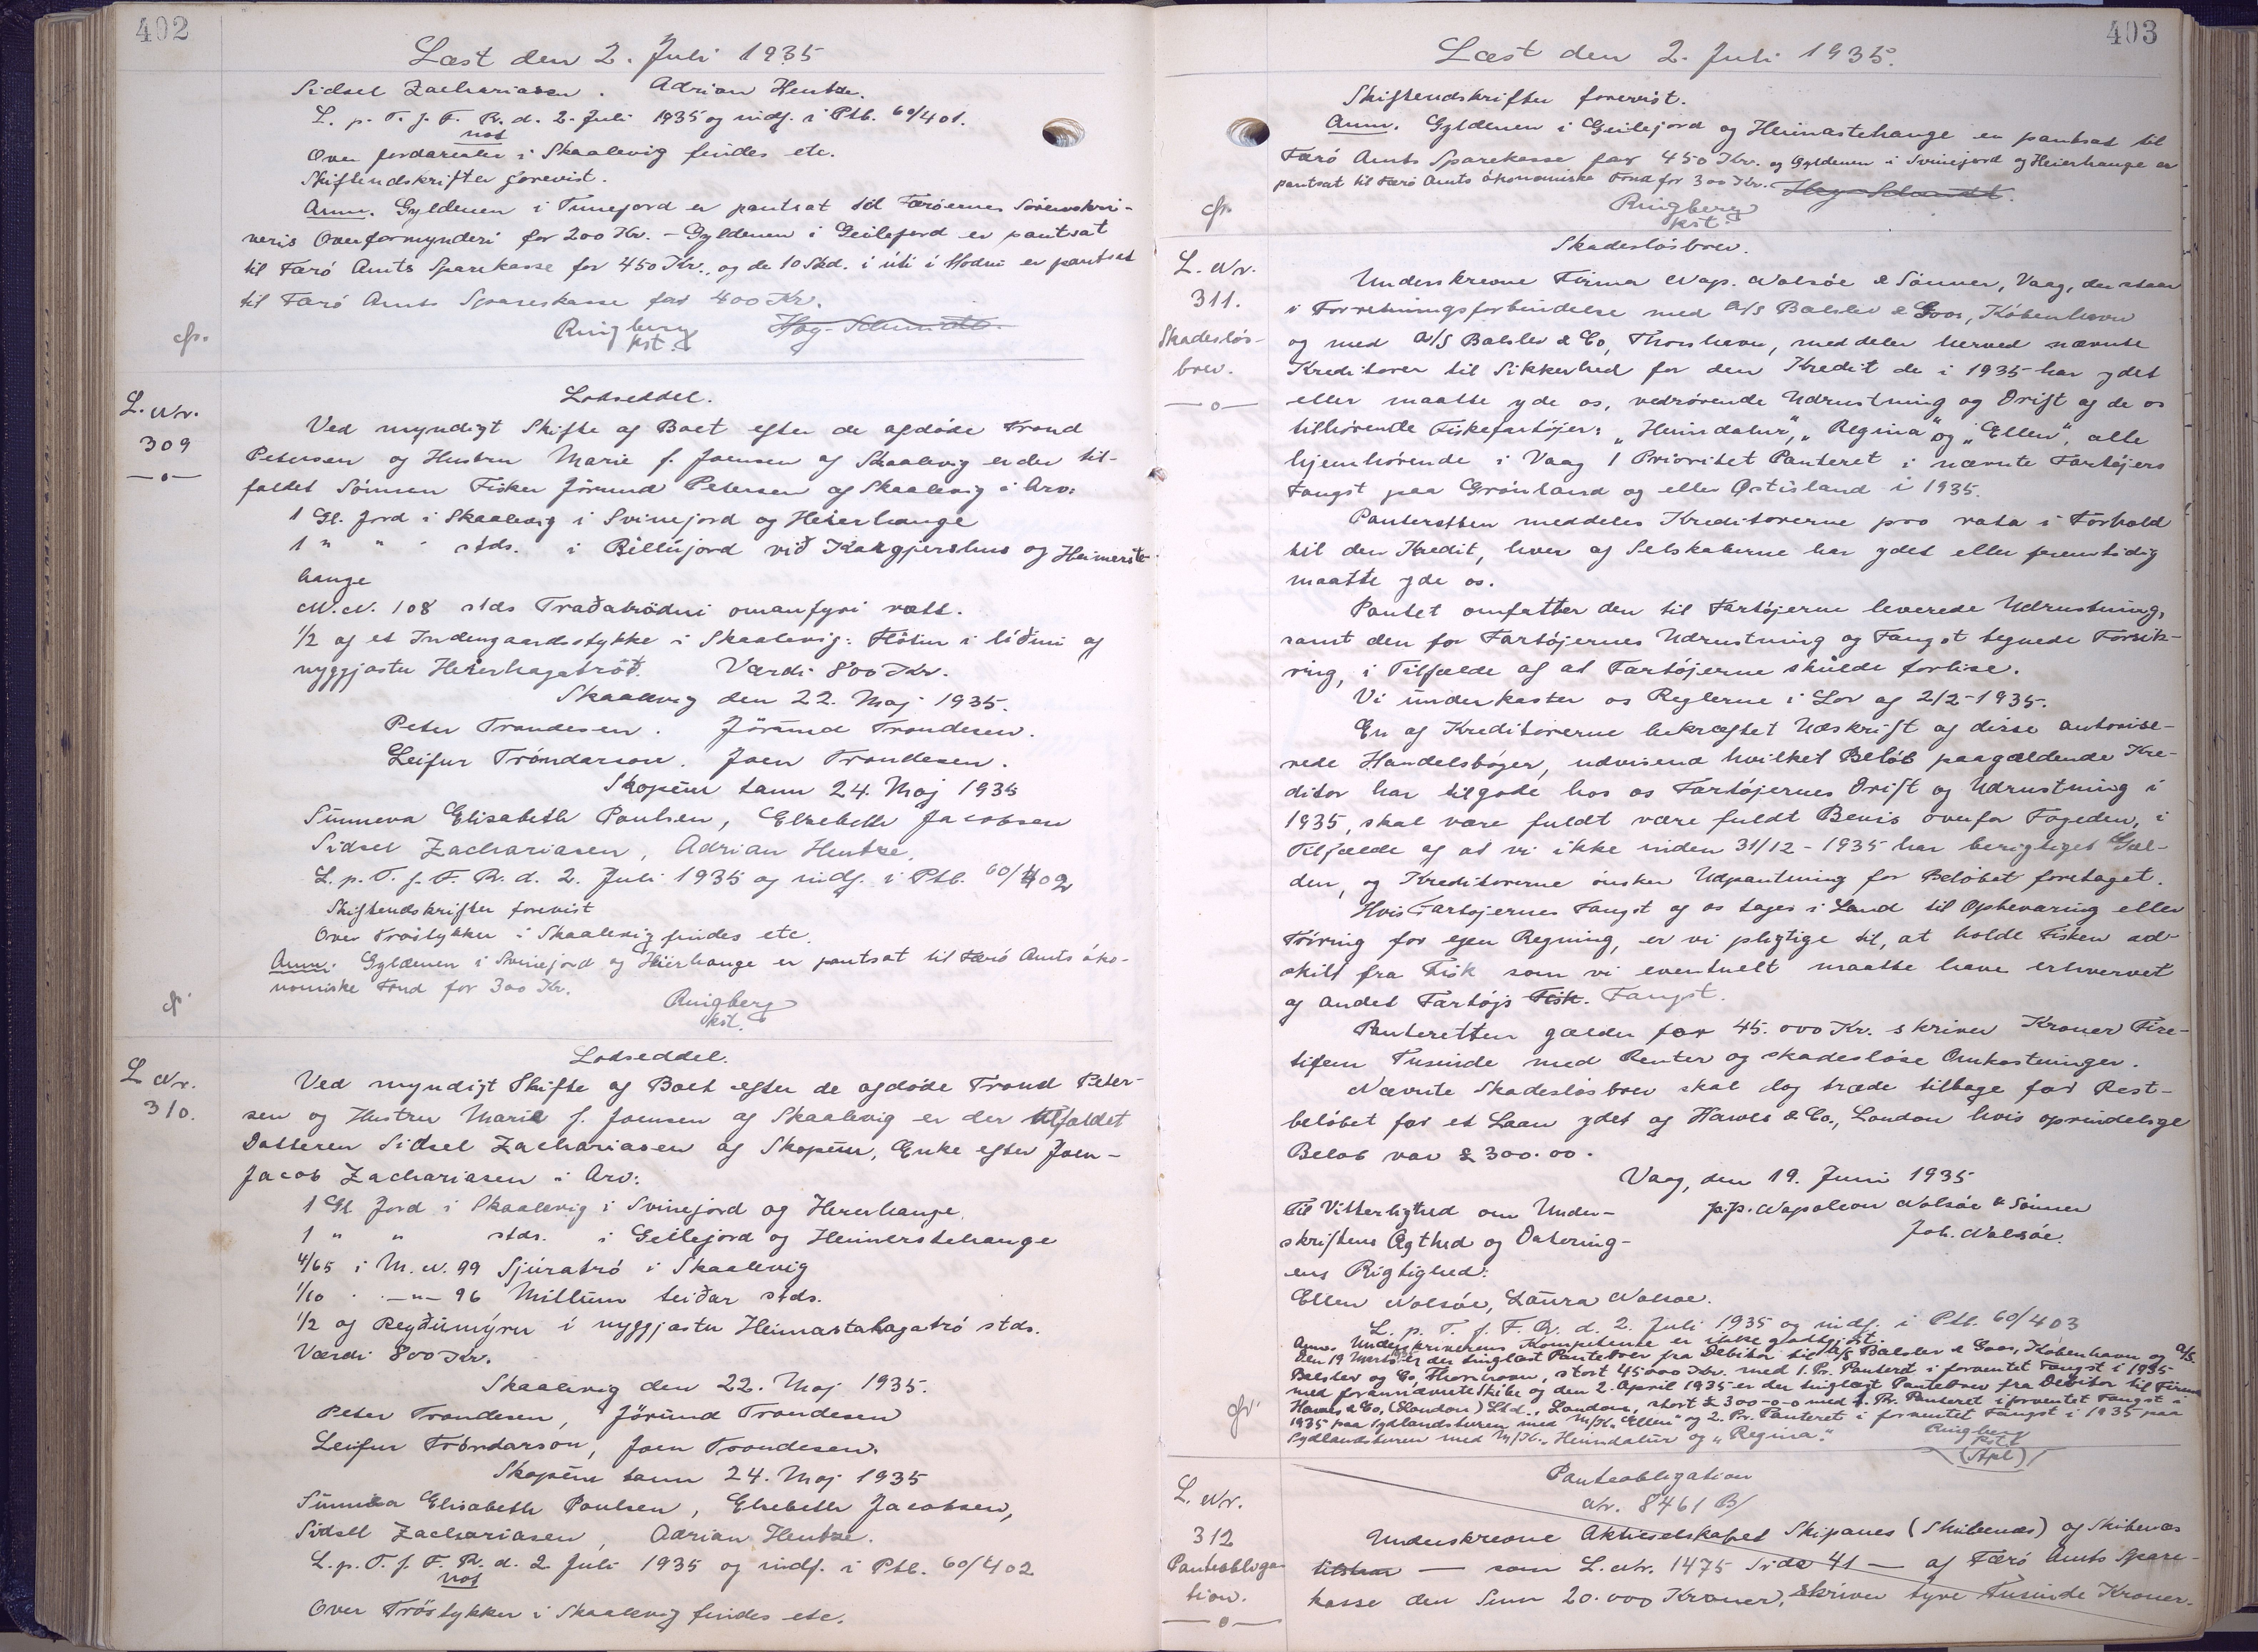 402
Læst den 2. Juli 1935
Sidsel Zachariasen. Adrian Hentze.
L. p. T. f. F. R. d. 2. Juli 1935 og indf. i Ptb. 60/401.
not
Over Jordarealer i Skaalevig findes etc.
Skifteudskrifter forevist.
Anm. Gyldenen i Tunejord er pantsat til Færöernes Sorenskri-
veris Overformynderi for 200 Kr. - Gyldenen i Geilejord er pantsat
til Færö Amts Sparekasse for 450 Kr., og de 10 Skd. i úti í Hodni er pantsat
til Færö Amts Sparekasse for 400 Kr.
Ringberg
kst.
Lodseddel.
L. Nr.
309
Ved myndigt Skifte af Boet efter de afdöde Trond
Petersen og Hustru Marie f. Joensen af Skaalevig er der til-
faldet Sönnen Fisker Jörund Petersen af Skaalevig i Arv:
1 Gl. Jord i Skaalevig i Svinejord og Heierhange
1 " " " stds. i Rillújord við Kálgjershus og Heimerste-
hange
M.N. 108 stds Traðatröðni omanfyri rætt.
1/2 af et Indengaardsstykke i Skaalevig: Flötin i líðini og
nyggjastu Heierhagatröð. Værdi 800 Kr.
Skaalevig den 22. Maj 1935.
Peter Trondesen. Jörund Trondesen.
Leifur Tróndarson. Joen Trondesen.
Skopun tann 24. Maj 1935
Sunneva Elisabeth Poulsen, Elsebeth Jacobsen
Sidsel Zachariasen, Adrian Hentze.
L. p. T. f. F. R. d. 2. Juli 1935 og indf. i Ptb. 60/402
Skifteudskrifter forevist
Over Tröstykker i Skaalevig findes etc.
Anm. Gyldenen i Svinejord og Heierhange er pantsat til Færö Amts öko-
nomiske Fond for 300 Kr.
Ringberg
kst.
Lodseddel.
L Nr.
310.
Ved myndigt Skifte af Boet efter de afdöde Trond Peter-
sen og Hustru Marie f. Joensen af Skaalevig er der tilfaldet
Datteren Sidsel Zachariasen af Skopun, Enke efter Joen-
Jacob Zachariasen i Arv:
1 Gl. Jord i Skaalevig i Svinejord og Heierhange.
1 " " stds. i Geilejord og Heimerstehange
4/65 i M.N. 99 Sjúratró i Skaalevig
1/10 - " - 96 Millum leiðar stds.
1/2 af Reyðumýru í nyggjastu Heimastahagatró stds.
Værdi 800 Kr.
Skaalevig den 22. Maj 1935.
Peter Trondesen, Jörund Trondesen
Leifur Tróndarson, Joen Trondesen.
Skopun tann 24. Maj 1935
Sunneva Elisabeth Poulsen, Elsebeth Jacobsen,
Sidsel Zachariasen, Adrian Hentze.
L. p. T. f. F. R. d. 2 Juli 1935 og indf. i Ptb. 60/402
not
Over Tröstykker i Skaalevig findes etc.
403
Læst den 2. Juli 1935.
Skifteudskrifter forevist.
Anm. Gyldenen i Geilejord og Heimastehange er pantsat til
Færö Amts Sparekasse for 450 Kr. og Gyldenen i Svinejord og Heierhange er
pantsat til Færö Amts ökonomiske Fond for 300 Kr.
Ringberg
kst.
Skadeslösbrev.
L. Nr.
311.
Skadeslös-
brev.
Underskrevne Firma Nap. Nolsöe & Sönner, Vaag, der staar
i Forretningsforbindelse med A/S Balslev & Goos, Köbenhavn
og med A/S Balslev & Co, Thorshavn, meddeler herved nævnte
Kreditorer til Sikkerhed for den Kredit de i 1935 har ydet
eller maatte yde os, vedrörende Udrustning og Drift af de os
tilhörende Fiskefartöjer: "Heimdalur", "Regina" og "Ellen", alle
hjemhörende i Vaag 1 Prioritet Panteret i nævnte Fartöjers
Fangst paa Grönland og eller Østisland i 1935.
Panteretten meddeles Kreditorerne pro rata i Forhold
til den Kredit, hver af Selskaberne har ydet eller fremtidig
maatte yde os.
Pantet omfatter den til Fartöjerne leverede Udrustning,
samt den for Fartöjernes Udrustning og Fangst tegnede Forsik-
ring, i Tilfælde af at Fartöjerne skulde forlise.
Vi underkaster os Reglerne i Lov af 2/2-1935.
En af Kreditorerne bekræftet Udskrift af disse autorise-
rede Handelsböger, udvisend hvilket Belöb paagældende Kre-
ditor har tilgode hos os Fartöjernes Drift og Udrustning i
1935, skal være fuldt være fuldt Bevis overfor Fogeden, i
Tilfælde af at vi ikke inden 31/12-1935 har berigtiget Gæl-
den, og Kreditorerne önsker Udpantning for Belöbet foretaget.
Hvis Fartöjernes Fangst af os tages i Land til Opbevaring eller
Törring for egen Regning, er vi pligtige til, at holde Fisken ad-
skilt fra Fisk som vi eventuelt maatte have erhvervet
af andet Fartöjs Fisk. Fangst.
Panteretten gælder for 45.000 Kr. skriver Kroner Fire-
tifem Tusinde med Renter og skadeslöse Omkostninger.
Nævnte Skadeslösbrev skal dog træde tilbage for Rest-
belöbet for et Laan ydet af Hawes & Co., London hvis oprindelige
Belöb var £ 300.00.
Vaag, den 19. Juni 1935
Til Vitterlighed om Under- p.p. Napoleon Nolsöe & Sönner
skriftens Ægthed og Datering- Joh. Nolsöe.
ens Rigtighed:
Ellen Nolsöe, Laura Nolsöe.
L. p. T. f. F. R. d. 2. Juli 1935 og indf. i Ptb. 60/403
Anm. Underskriverens Kompetence er ikke godtgjort.
Den 19 Marts er der tinglæst Pantebrev fra Debitor til A/S Balslev & Goos, Köbenhavn og A/S.
Balslev og Co, Thorshavn, stort 45000 Kr. med 1. Pr. Panteret i forventet Fangst i 1935
med forannævnte Skibe og den 2. April 1935 er der tinglæst Pantebrev fra Debitor til Firma
Hawes & Co, (London) Ltd., London, stort £ 300-0-0 med 1. Pr. Panteret i forventet Fangst i
1935 paa Sydlandsturen med M/K. "Ellen" og 2. Pr. Panteret i forventet Fangst i 1935 paa
Sydlandsturen med M/K. "Heimdalur og "Regina".
Ringberg
kst.
(Stpl)
Panteobligation
Nr. 8461 B/
L. Nr.
312
Panteobliga-
tion.
Underskrevne Aktieselskabet Skipanes (Skibenæs) og Skibenæs
— som L. Nr. 1475 Side 41 — af Færö Amts Spare-
kasse den Sum 20.000 Kroner, skriver tyve Tusinde Kroner.